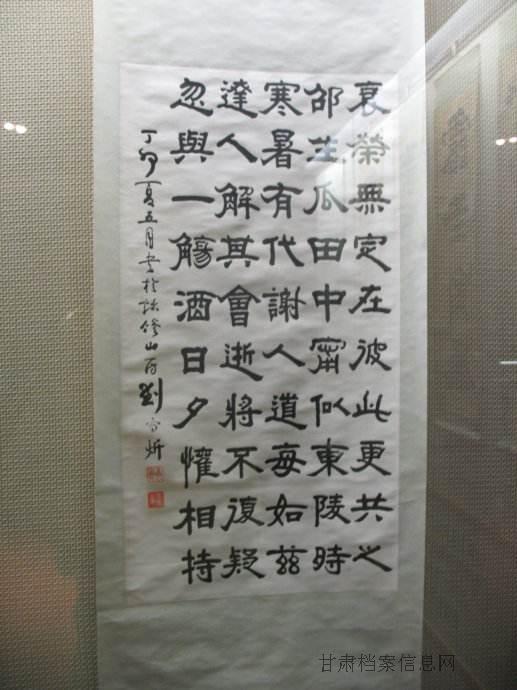 衰榮無定在彼此更共之
邵生瓜田中甯似東陵時
寒暑有代謝人道每如茲
達人解其會逝將不復疑
忽與一觴酒日夕懽相持
丁卯夏五月書於山房劉炘
甘肃档案信息网